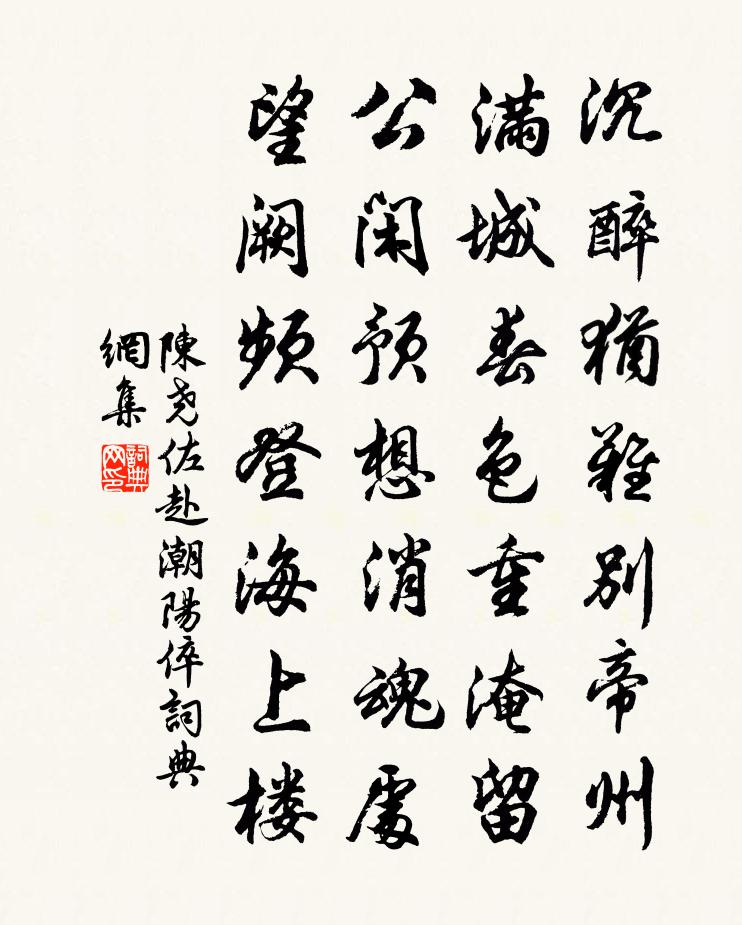 沉醉猶難別帝州
滿城春色重淹留
公閑預想消魂處
望闕頻登海上樓
陳堯佐赴潮陽倅詞典
網集
詞典
网印